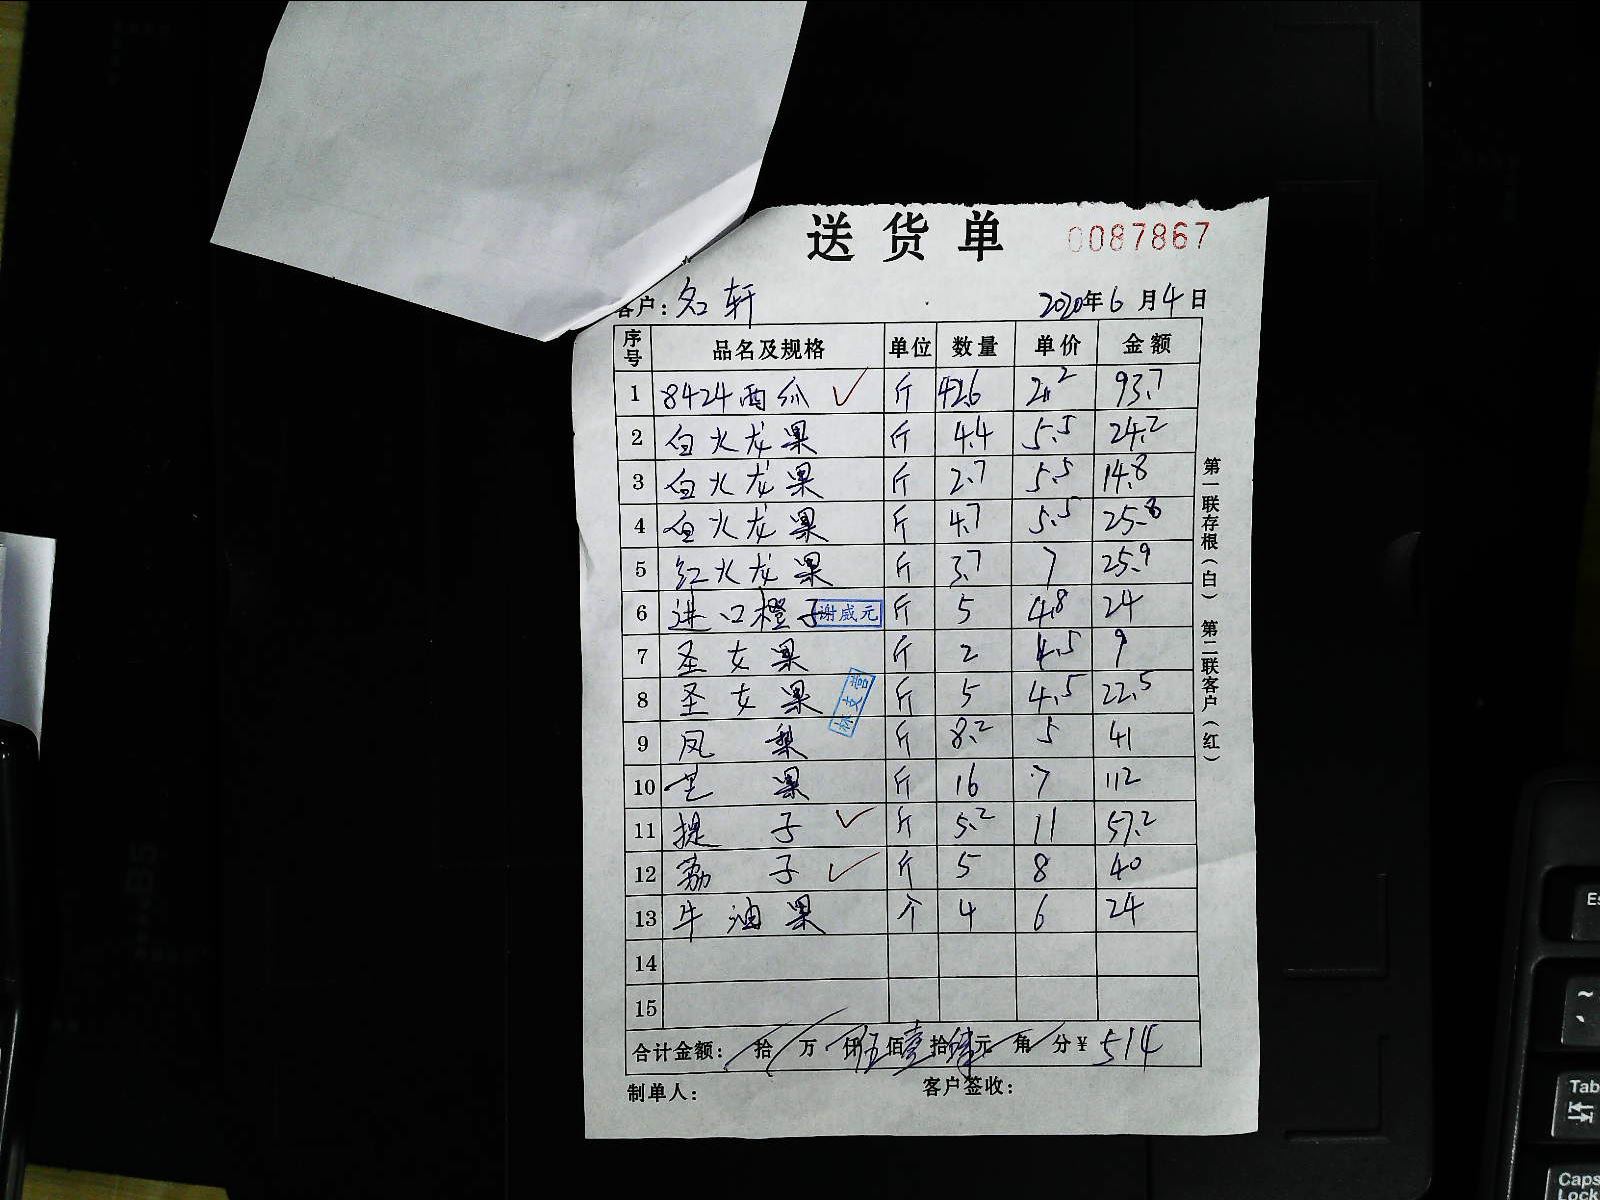 送货单 0087867
客户：名轩 2020年6月4日
序号 品名及规格 单位 数量 单价 金额
1 8424西瓜 ✓ 斤 42.6 2.2 93.7
2 白火龙果 斤 4.4 5.5 24.2
3 白火龙果 斤 2.7 5.5 14.8
4 白火龙果 斤 4.7 5.5 25.8
5 红火龙果 斤 3.7 7 25.9
6 进口橙子 谢威元 斤 5 4.8 24
7 圣女果 斤 2 4.5 9
8 圣女果 斤 5 4.5 22.5
9 凤梨 斤 8.2 5 41
10 芒果 斤 16 7 112
11 提子 ✓ 斤 5.2 11 57.2
12 荔子 ✓ 斤 5 8 40
13 牛油果 个 4 6 24
14
15
合计金额： 拾 万 仟伍佰壹拾肆元 角 分￥ 514
制单人： 客户签收：
第一联存根（白） 第二联客户（红）
Tab
Caps Lock